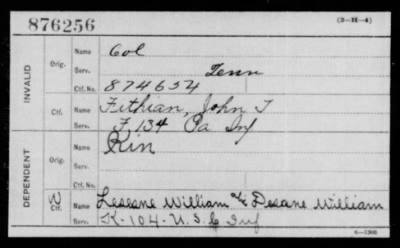 876256
(3-H-4)
INVALID
Orig.
Name Col
Serv. Tenn
Ctf. No. 874654
Ctf.
Name Fithian, John T
Serv. F, 134 Pa Inf
DEPENDENT
Orig.
Name Rin
Serv.
Ctf. No.
W Ctf.
Name William Desane William
Serv. K-104-U.S.C Inf